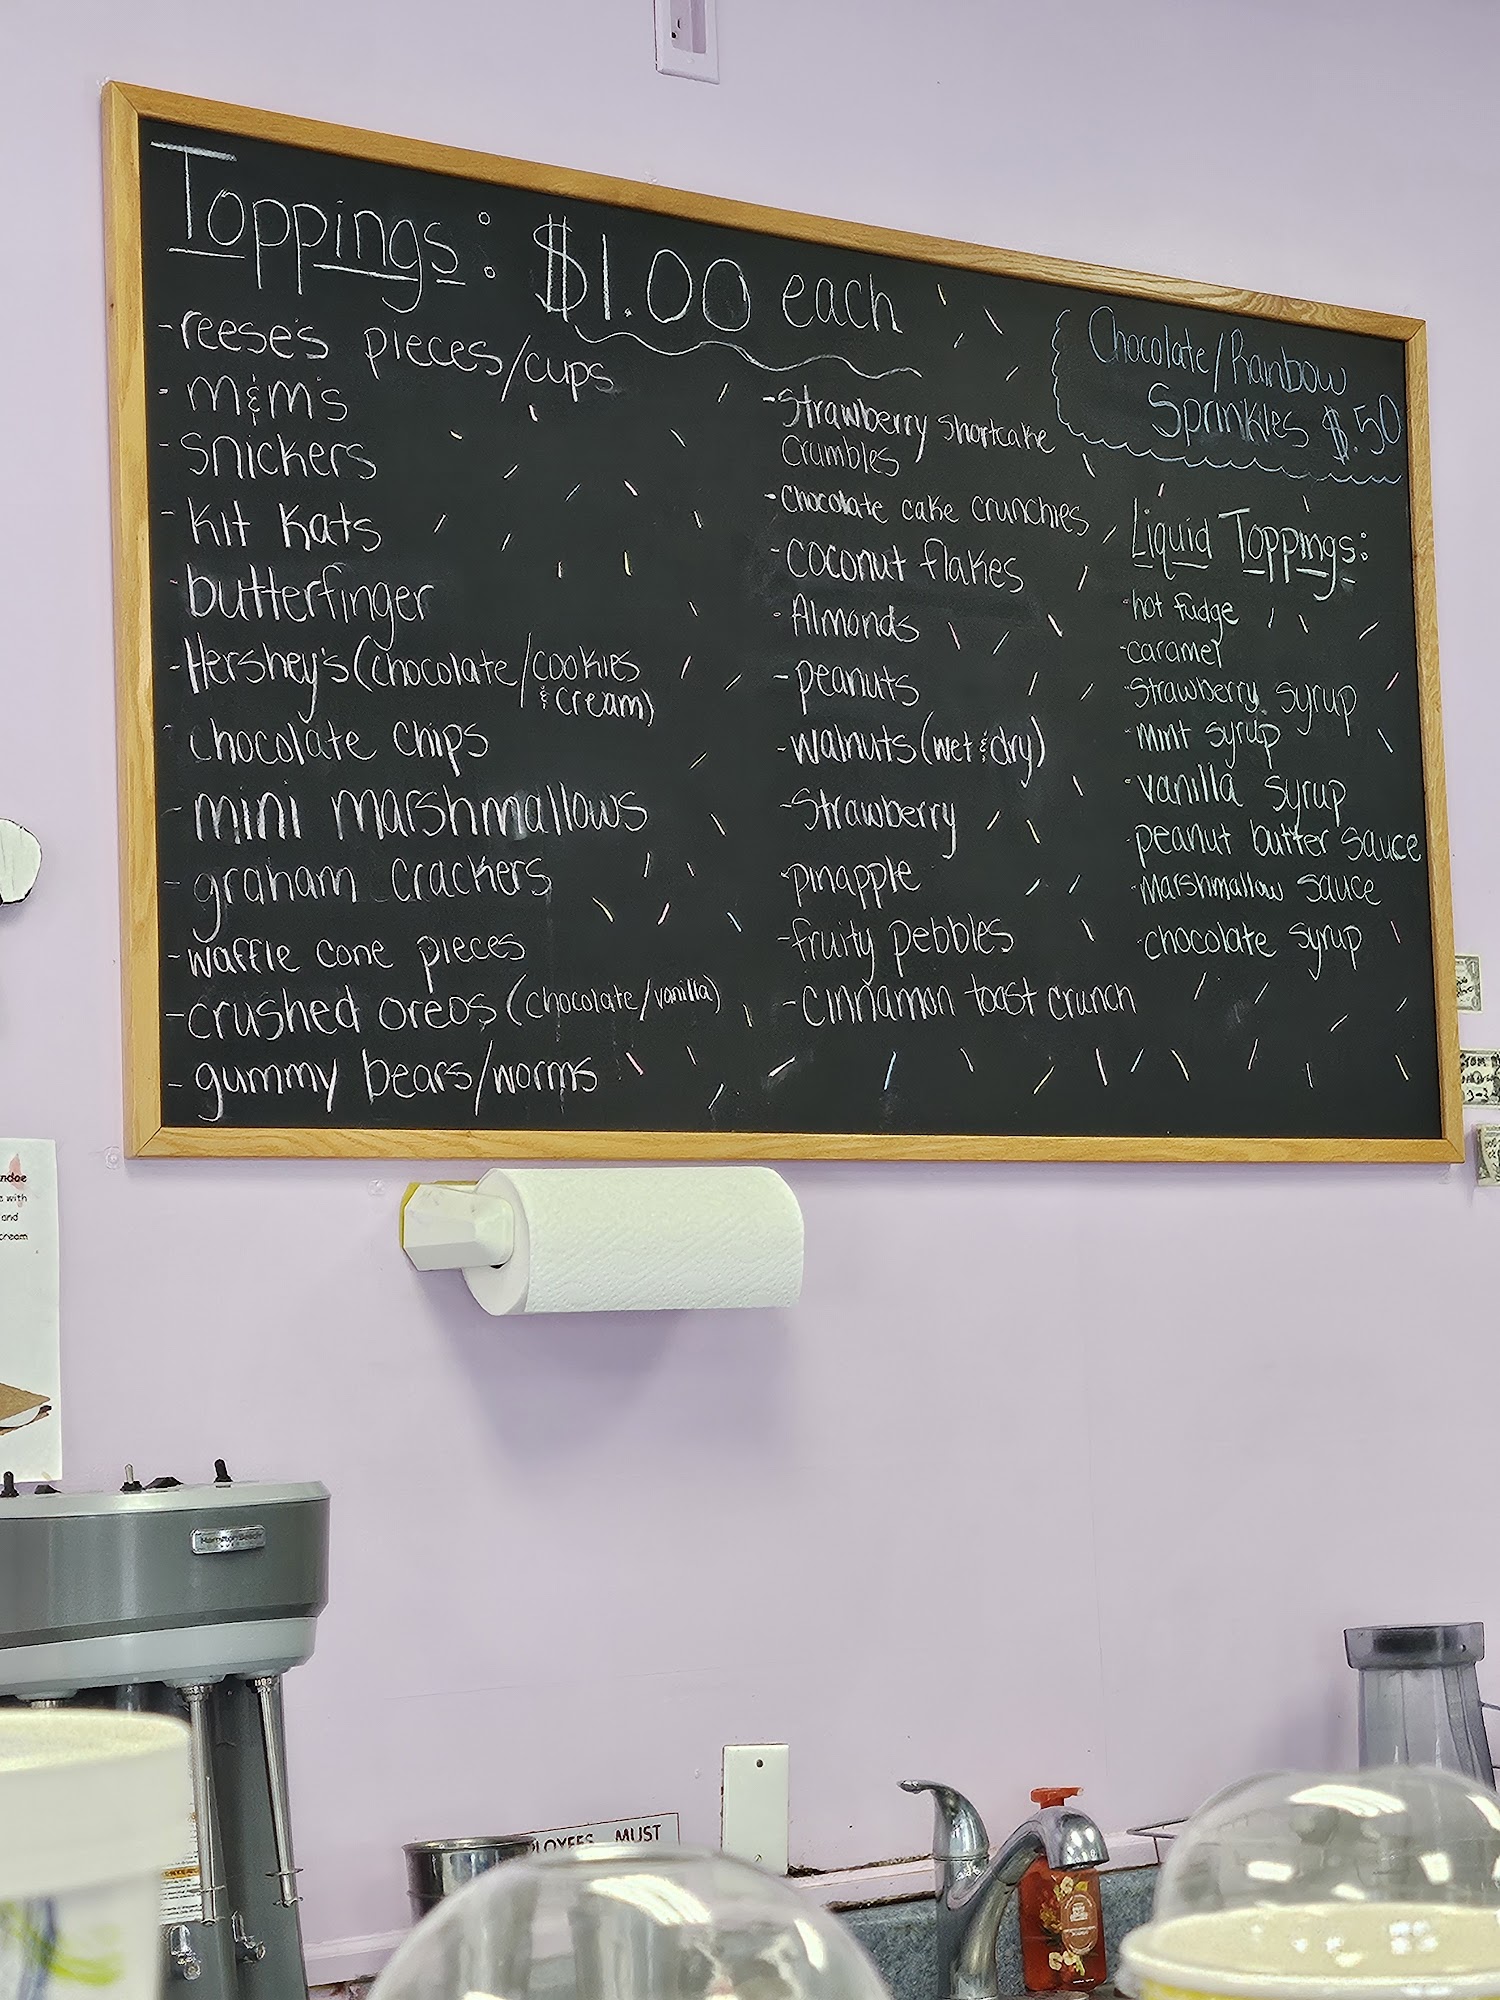 Toppings: $1.00 each
-reese's pieces/cups
-m&m's
-snickers
-kit kats
-butterfinger
-Hershey's (chocolate/cookies
& cream)
-chocolate chips
-mini marshmallows
-graham crackers
-waffle cone pieces
-crushed oreos (chocolate/vanilla)
-gummy bears/worms
-Strawberry Shortcake
Crumbles
-chocolate cake crunchies
-coconut flakes
-Almonds
-peanuts
-walnuts (wet & dry)
-Strawberry
-pinapple
-fruity pebbles
-cinnamon toast crunch
Chocolate/Rainbow
Sprinkles $.50
Liquid Toppings:
-hot fudge
-caramel
-Strawberry syrup
-mint syrup
-vanilla syrup
-peanut butter sauce
-marshmallow sauce
-chocolate syrup
with
and
cream
Hamilton Beach
MUST